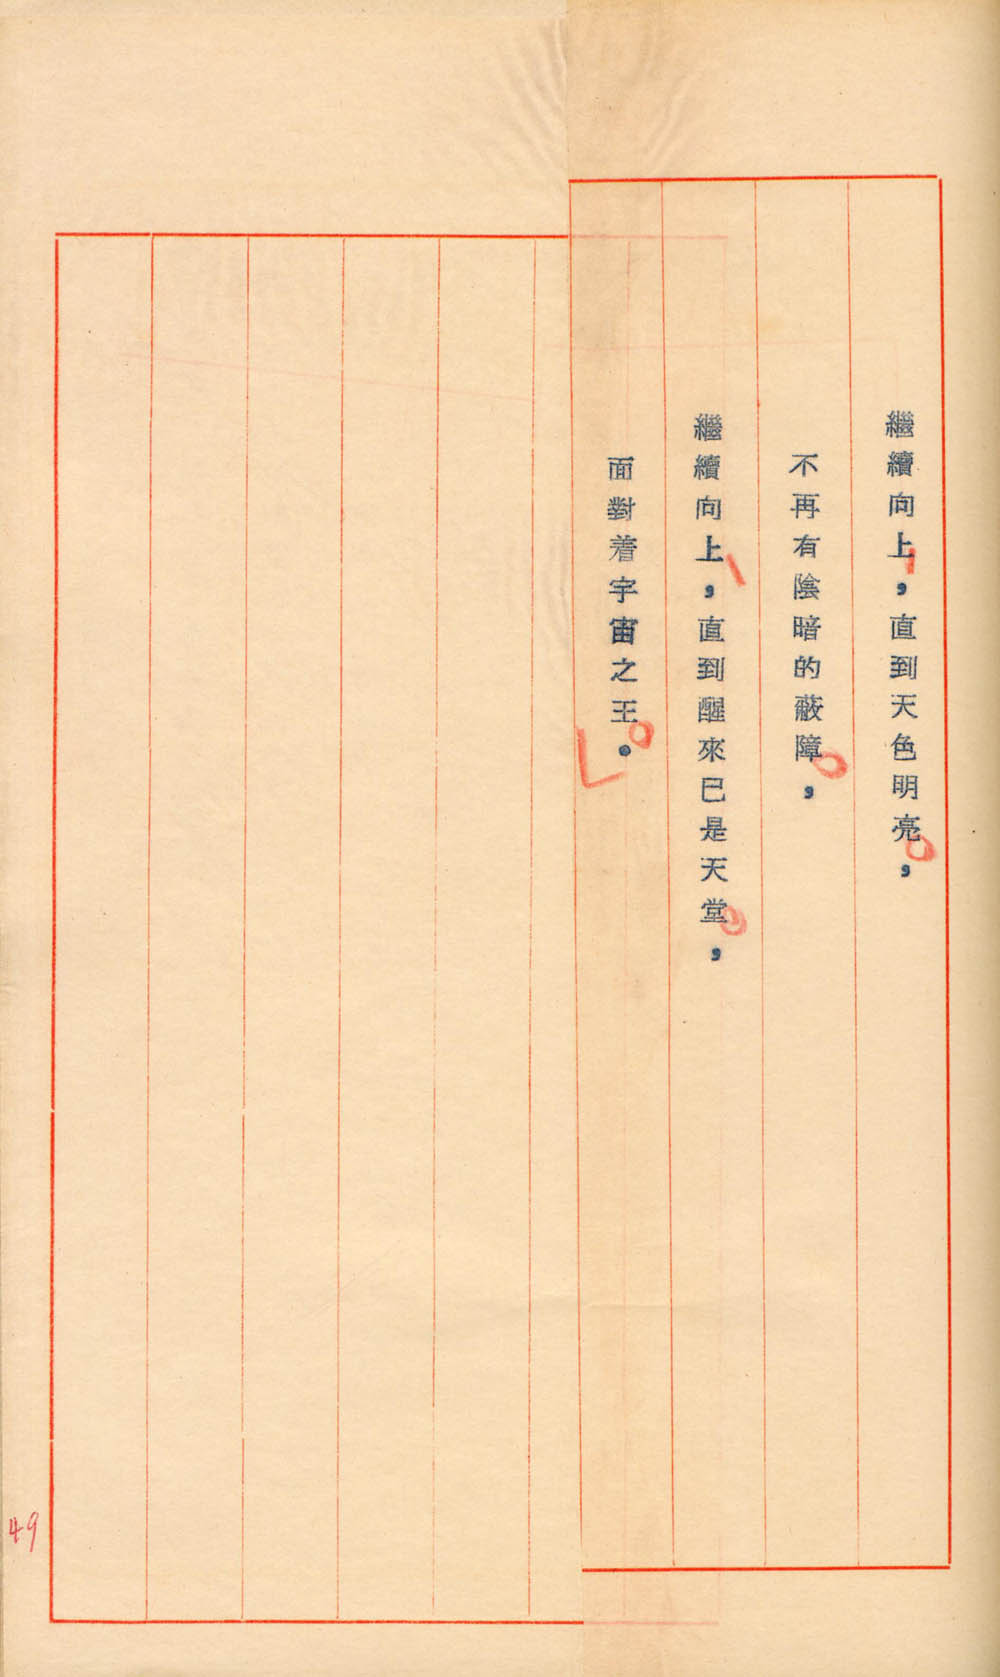 繼續向上，直到天色明亮，
不再有陰暗的蔽障，
繼續向上，直到醒來已是天堂，
面對着宇宙之王。
49